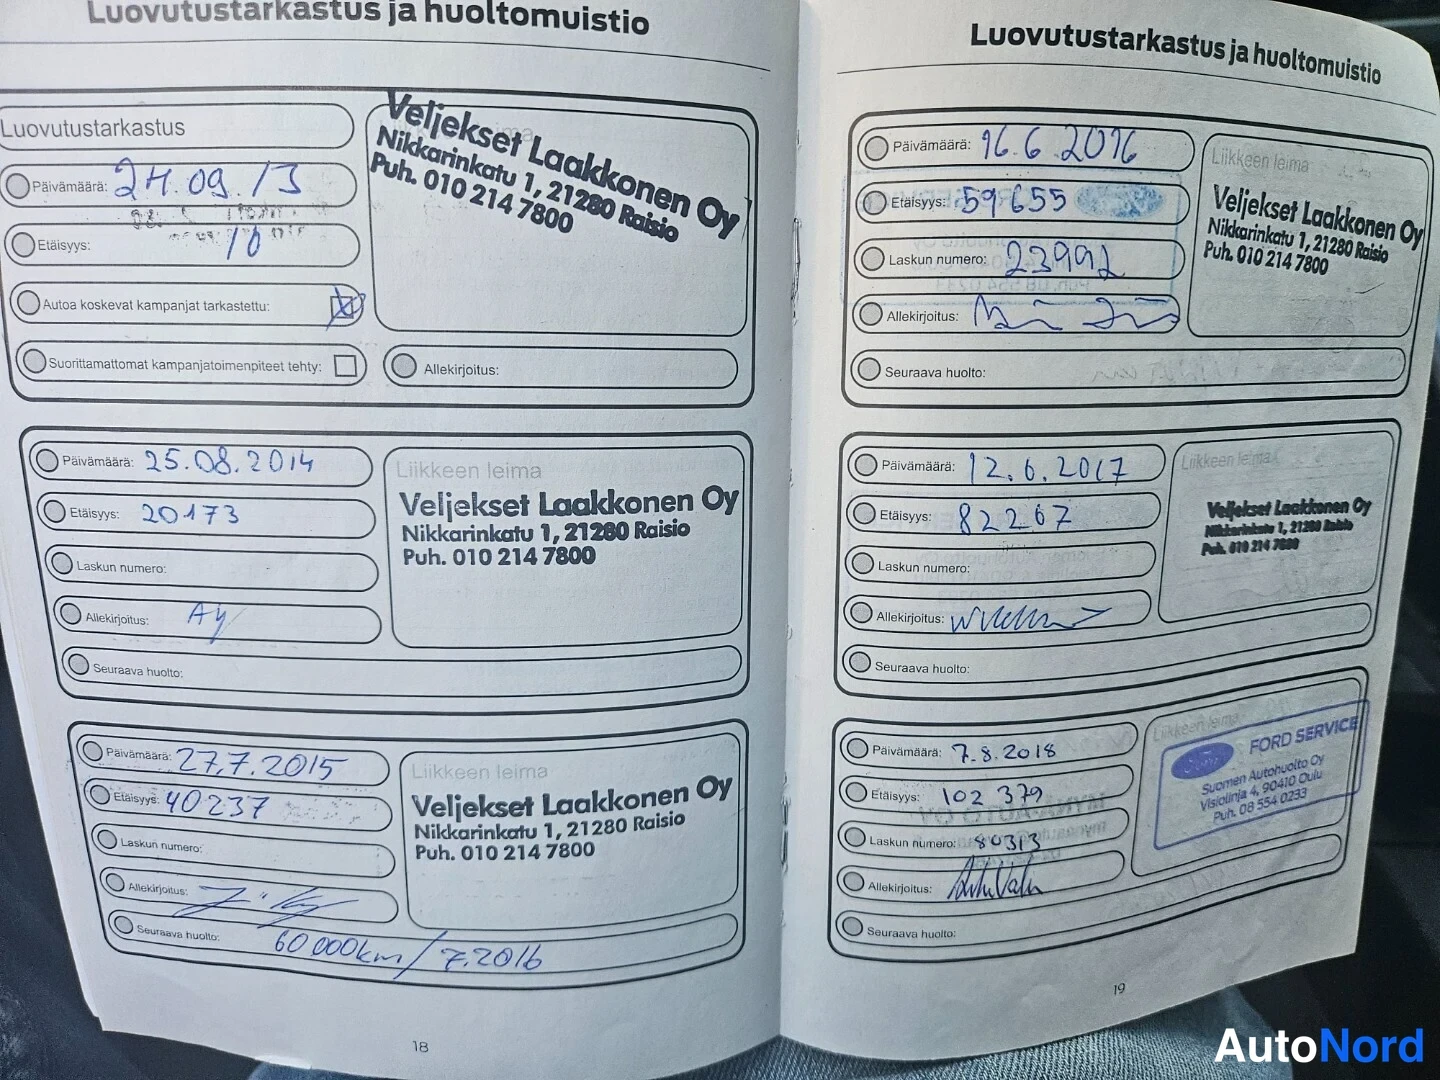 Luovutustarkastus ja huoltomuistio
Luovutustarkastus
Päivämäärä: 24.09.13
Etäisyys: 10
Autoa koskevat kampanjat tarkastettu:
Suorittamattomat kampanjatoimenpiteet tehty:
Veljekset Laakkonen Oy
Nikkarinkatu 1, 21280 Raisio
Puh. 010 214 7800
Allekirjoitus:
Päivämäärä: 25.08.2014
Etäisyys: 20173
Laskun numero:
Allekirjoitus:
Seuraava huolto:
Liikkeen leima
Veljekset Laakkonen Oy
Nikkarinkatu 1, 21280 Raisio
Puh. 010 214 7800
Päivämäärä: 27.7.2015
Etäisyys: 40237
Laskun numero:
Allekirjoitus:
Seuraava huolto: 60 000km / 7.2016
Liikkeen leima
Veljekset Laakkonen Oy
Nikkarinkatu 1, 21280 Raisio
Puh. 010 214 7800
18
Luovutustarkastus ja huoltomuistio
Päivämäärä: 16.6.2016
Etäisyys: 59655
Laskun numero: 23992
Allekirjoitus:
Seuraava huolto:
Liikkeen leima
Veljekset Laakkonen Oy
Nikkarinkatu 1, 21280 Raisio
Puh. 010 214 7800
Päivämäärä: 12.6.2017
Etäisyys: 82267
Laskun numero:
Allekirjoitus:
Seuraava huolto:
Liikkeen leima
Veljekset Laakkonen Oy
Nikkarinkatu 1, 21280 Raisio
Puh. 010 214 7800
Päivämäärä: 7.8.2018
Etäisyys: 102 379
Laskun numero: 80313
Allekirjoitus:
Seuraava huolto:
Liikkeen leima
Ford FORD SERVICE
Suomen Autohuolto Oy
Visiolinja 4, 90410 Oulu
Puh. 08 554 0233
19
AutoNord